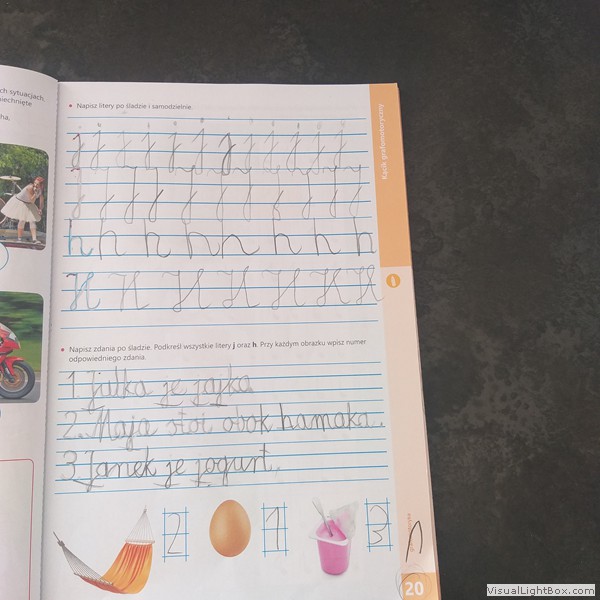 ch sytuacjach.
iechnięte
ha,
• Napisz litery po śladzie i samodzielnie.
j j j j j j j j j j j j
j j j j j j j j j
h h h h h h h h
H H H H H H H
• Napisz zdania po śladzie. Podkreśl wszystkie litery j oraz h. Przy każdym obrazku wpisz numer
odpowiedniego zdania.
1. Julka je jajka
2. Maja stoi obok hamaka.
3. Janek je jogurt.
2 1 3
Kącik grafomotoryczny
20
VisualLightBox.com